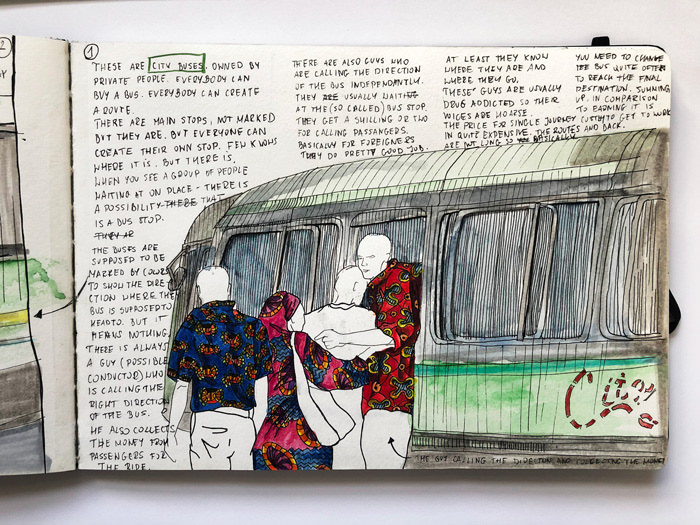 1
THESE ARE CITY BUSES. OWNED BY
PRIVATE PEOPLE. EVERYBODY CAN
BUY A BUS. EVERYBODY CAN CREATE
A ROUTE.
THERE ARE MAIN STOPS, NOT MARKED
BUT THEY ARE. BUT EVERYONE CAN
CREATE THEIR OWN STOP. FEW KNOWS
WHERE IT IS. BUT THERE IS.
WHEN YOU SEE A GROUP OF PEOPLE
WAITING AT ON PLACE - THERE IS
A POSSIBILITY THERE THAT
IS A BUS STOP.
THE BUSES ARE
SUPPOSED TO BE
MARKED BY COLORS
TO SHOW THE DIRE-
CTION WHERE THE
BUS IS SUPPOSED TO
HEAD TO. BUT IT
MEANS NOTHING.
THERE IS ALWAYS
A GUY (POSSIBLE
CONDUCTOR) WHO
IS CALLING THE
RIGHT DIRECTION
OF THE BUS.
HE ALSO COLLECTS
THE MONEY FROM
PASSENGERS FOR
THE RIDE.
THERE ARE ALSO GUYS WHO
ARE CALLING THE DIRECTION
OF THE BUS INDEPENDANTLY.
THEY ARE USUALLY WAITING
AT THE (SO CALLED) BUS STOP.
THEY GET A SHILLING OR TWO
FOR CALLING PASSANGERS.
BASICALLY FOR FOREIGNERS
THEY DO PRETTY GOOD JOB.
AT LEAST THEY KNOW
WHERE THEY ARE AND
WHERE THEY GO.
THESE GUYS ARE USUALLY
DRUG ADDICTED SO THEIR
VOICES ARE HOARSE.
THE PRICE FOR SINGLE JOURNEY
IN QUITE EXPENSIVE. THE ROUTES
ARE NOT LONG SO BASICALLY
YOU NEED TO CHANGE
THE BUS QUITE OFTEN
TO REACH THE FINAL
DESTINATION. SUMMING
UP. IN COMPARISON
TO EARNING IT IS
COSTLY TO GET TO WORK
AND BACK.
THE GUY CALLING THE DIRECTION AND COLLECTING THE MONEY
2